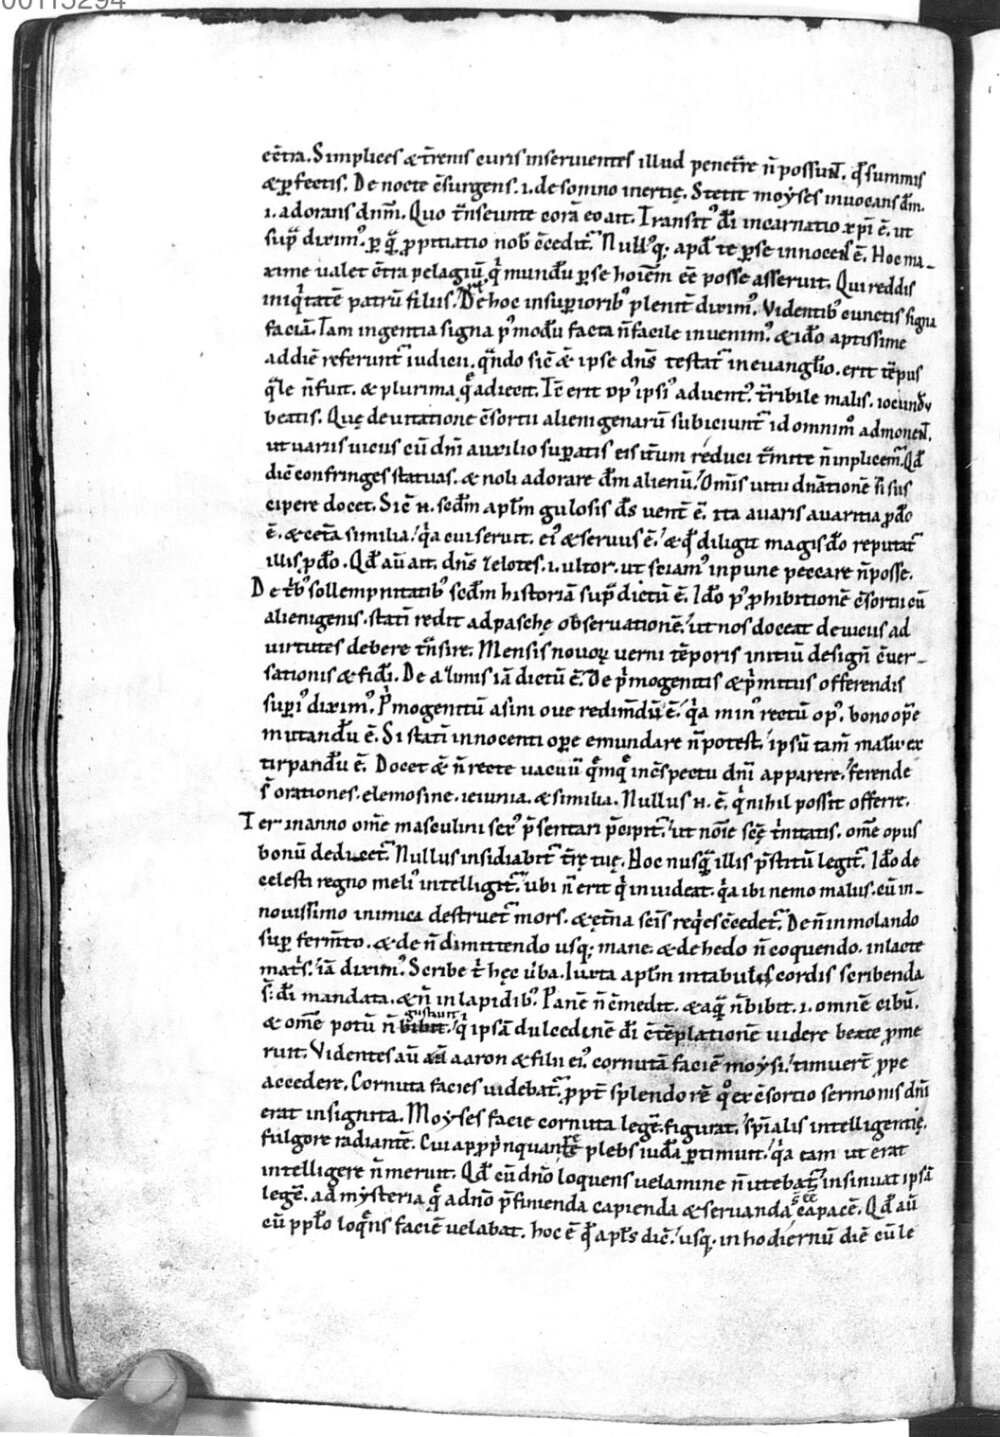 00115294
cẽtra. Simplices & t̃renis curis inseruientes illud penet̃re ñ possunt. q̃ summis
& ꝑfectis. De nocte c̃surgens .i. de somno inertię. Stetit moẏses inuocans dñm.
.i. adorans dnm̃. Quo t̃nseunte corã eo ait. Transit᷒ dĩ incarnatio xp̃i ẽ. ut
sup̃ dixim᷒. ꝑ q̃ ꝓpitiatio nob̃ c̃cedit᷑. Null᷒q; apd̃ te ꝑ se innocens ẽ. Hoc ma-
xime ualet c̃tra pelagiũ. q̃ mundũ ꝑ se hoiem̃ eẽ posse asseruit. Qui reddis
iniq̃tatẽ patrũ filiis. De hoc in suꝑiorib᷒ plenit̃ dixim᷒. Videntib᷒ cunctis signa
faciã. Tam ingentia signa p᷒ modũ facta ñ facile inuenim᷒. & iđo aptissime
ad diẽ referunt᷑ iudicii. q̃ndo sic̃ & ipse dnš testat᷑ in euanglio. erit tẽpus
q̃le ñ fuit. & plurima q̃ adiecit. It̃ erit op᷒ ipsi᷒ aduent᷒. t̃ribile malis. iocundũ
beatis. Quę de uitatione c̃sortii alienigenarũ subiciunt᷑ id omnim᷒ admonent.
ut uariis uiciis cũ dñi auxilio suꝑatis eis it̃um reduci t̃mite ñ inplicem᷑. Qđ
diẽ confringes statuas. & noli adorare dm̃ alienũ. Om̃is uitii dñationẽ ñ sus
cipere docet. Sic̃ n. scdm̃ apłm gulosis ds̃ uent̃ ẽ. ita auaris auaritia ꝓ đo
ẽ. & cet̃a similia. q̃a cui seruit. ei᷒ & seruus ẽ. & qđ diligit magis đo reputat᷑
illis ꝓ đo. Qđ aũ ait. dns̃ zelotes. .i. ultor. ut sciam᷒ inpune peccare ñ posse.
De t̃b᷒ sollempnitatib᷒ scdm̃ historiã sup̃ dictũ ẽ. Iđo p᷒ ꝓhibitionẽ c̃sortii cũ
alienigenis. statĩ redit ad paschę obseruationẽ. ut nos doceat de uiciis ad
uirtutes debere t̃nsire. Mensis nouoꝝ uerni tẽporis initiũ design̄ c̃uer-
sationis & fidĩ. De azimis iã dictũ ẽ. De p̃mogenitis & p̃mitiis offerendis
supi᷒ dixim᷒. P̃mogenitũ asini oue redimd̃ũ ẽ. q̃a min᷒ rectũ op᷒. bono oꝑe
mutandũ ẽ. Si statĩ innocenti oꝑe emundare ñ potest. ipsũ tam̃ malũ ex
tirpandũ ẽ. Docet & ñ recte uacuũ q̃mq̃ in c̃spectu dñi apparere. ferende
s̃ orationes. elemosine. ieiunia. & similia. Nullus n. ẽ. q̃ nihil possit offerre.
Ter in anno om̃e masculini sex᷒ p̃sentari p̃cipit᷑. ut noĩe scẽ t̃nitatis. om̃e opus
bonũ dedicet᷑. Nullus insidiabit᷑ t̃rę tuę. Hoc nusq̃ illis p̃stitũ legit᷑. Iđo de
celesti regno meli᷒ intelligit᷑. ubi ñ erit q̃ inuideat. q̃a ibi nemo malus. cũ in-
nouissimo inimica destruet᷑ mors. & et̃na sc̃is req̃es c̃cedet᷑. De ñ inmolando
suꝑ ferm̃to. & de ñ dimittendo usq; mane. & de hedo ñ coquendo. in lacte
mat̃s. iã dixim᷒. Scribe t̃ hęc u̾ba. Iuxta apłm in tabulis cordis scribenda
s̃ dĩ mandata. & ñ in lapidib᷒. Panẽ ñ c̃medit. & aq̃ ñ bibit. .i. omnẽ cibũ.
gustauit
& om̃e potũ ñ bibit. q̃ ipsã dulcedinẽ dĩ c̃tẽplationẽ uidere beate ꝓme
ruit. Videntes aũ aaron & filii ei᷒ cornutã faciẽ moẏsi. timuer̃t ꝓpe
accedere. Cornuta facies uidebat᷑. ꝓpt̃ splendorẽ q̃ ex c̃sortio sermonis dñi
erat insignita. Moẏses facie cornuta legẽ figurat. spĩalis intelligentię.
fulgore radiantẽ. Cui appp̃inquantẽ plebs iudã ꝑtimuit. q̃a eam ut erat
intelligere ñ meruit. Qđ cũ dño loquens uelamine ñ utebat᷑. insinuat ipsã
legẽ. ad mẏsteria q̃ ad nõ p̃finienda capienda & seruanda s̃ eẽ capacẽ. Qđ aũ
cũ ppło loq̃ns faciẽ uelabat. hoc ẽ qđ apłs diẽ. usq. in hodiernũ diẽ cũ le